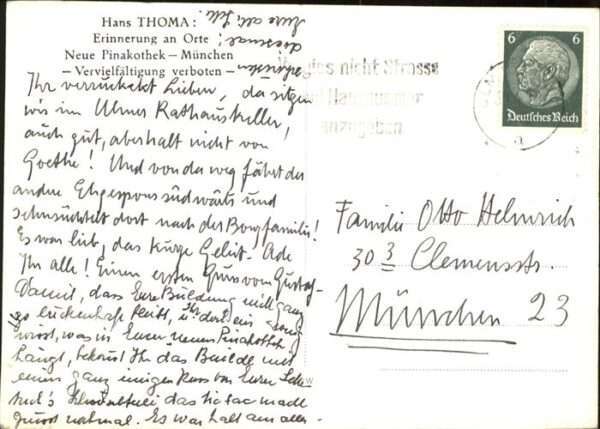 Hans THOMA:
Erinnerung an Orte
Neue Pinakothek – München
– Vervielfältigung verboten –
Ihr verrückelt Lieben, da sitzen
wir im Ulmer Rathauskeller,
auch gut, aber halt nicht von
Goethe! Und von da weg fährt der
andre Ehgespons südwärts und
sehnsüchtelt dort nach der Borgfamilie!
Es war lieb, das kurze Geleit. Ade
Ihr alle! Einen ersten Gruss von Gustaf
Damit, dass Eure Bildung nicht ganz
so lückenhaft bleibt, u. Ihr dort ein
wisst, was in Eurer neuen Pinakothek
hängt, bekommt Ihr das Buidle mit
einem ganz innigen Kuss von Eurer
das tic tac macht
nochmal. Es war halt am aller-
schönsten
diesmal!
Eure alte
Vergiss nicht Strasse
und Hausnummer
anzugeben
6 6
Deutsches Reich
Familie Otto Helmrich
30 3 Clemensstr.
München 23